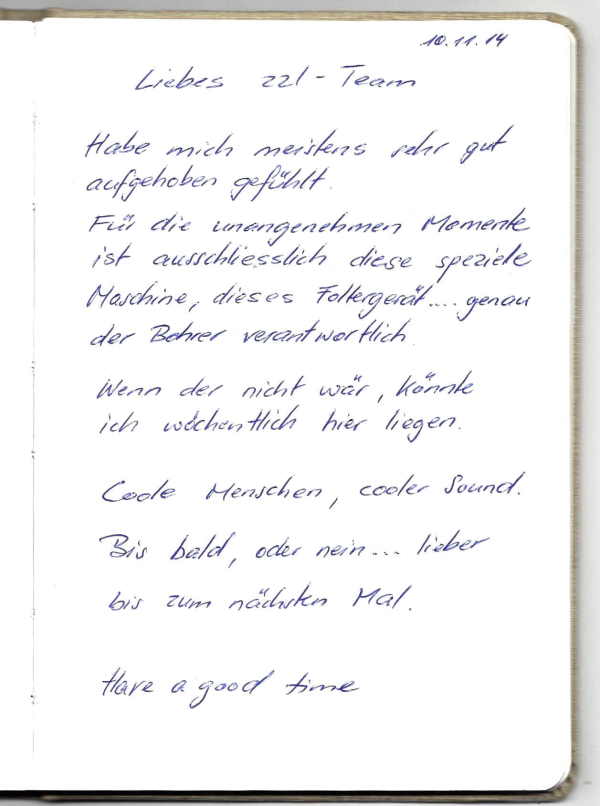 10.11.14
Liebes zzl-Team
Habe mich meistens sehr gut
aufgehoben gefühlt.
Für die unangenehmen Momente
ist ausschliesslich diese spezielle
Maschine, dieses Foltergerät.... genau
der Bohrer verantwortlich.
Wenn der nicht wär, könnte
ich wöchentlich hier liegen.
Coole Menschen, cooler Sound.
Bis bald, oder nein... lieber
bis zum nächsten Mal.
Have a good time